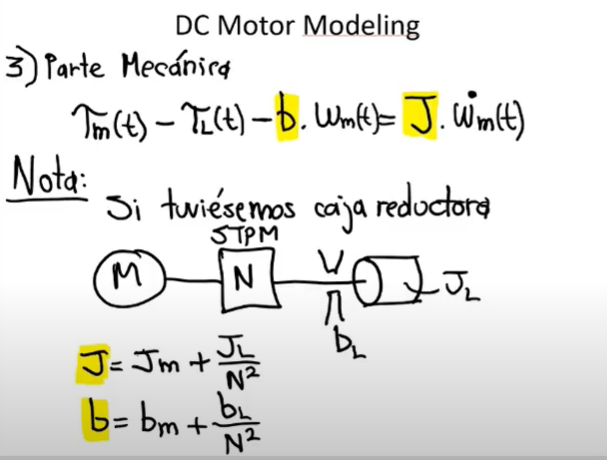 DC Motor Modeling
3) Parte Mecánica
Tm(t) - TL(t) - b. Wm(t) = J. Ẇm(t)
Nota:
Si tuviésemos caja reductora
STPM
M
N
JL
bL
J = Jm + JL/N²
b = bm + bL/N²